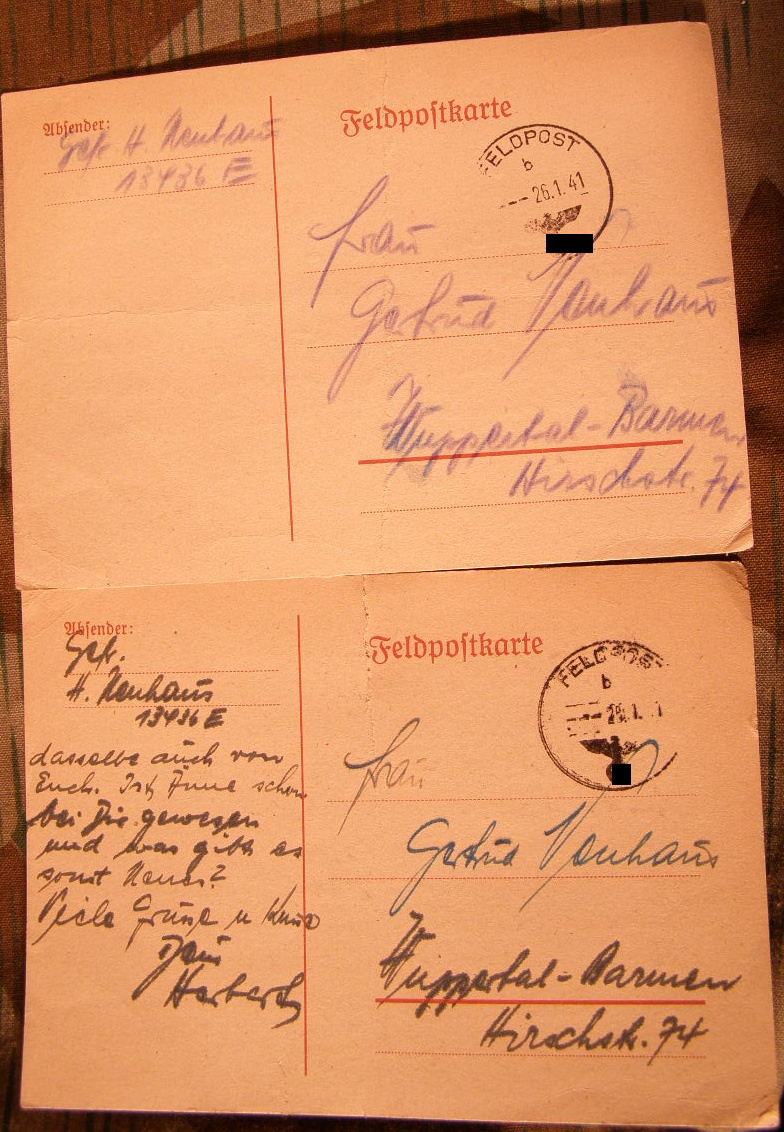 Absender:
Gefr. H. Neuhaus
13436 E
Feldpostkarte
FELDPOST
b
26.1.41
Frau
Gertrud Neuhaus
Wuppertal-Barmen
Hirschstr. 74
Absender:
Gefr.
H. Neuhaus
13436 E
dasselbe auch von
Euch. Ist Änne schon
bei Dir gewesen
und was gibt es
sonst Neues?
Viele Grüße u Küsse
Dein
Herbert
Feldpostkarte
FELDPOST
b
Frau
Gertrud Neuhaus
Wuppertal-Barmen
Hirschstr. 74